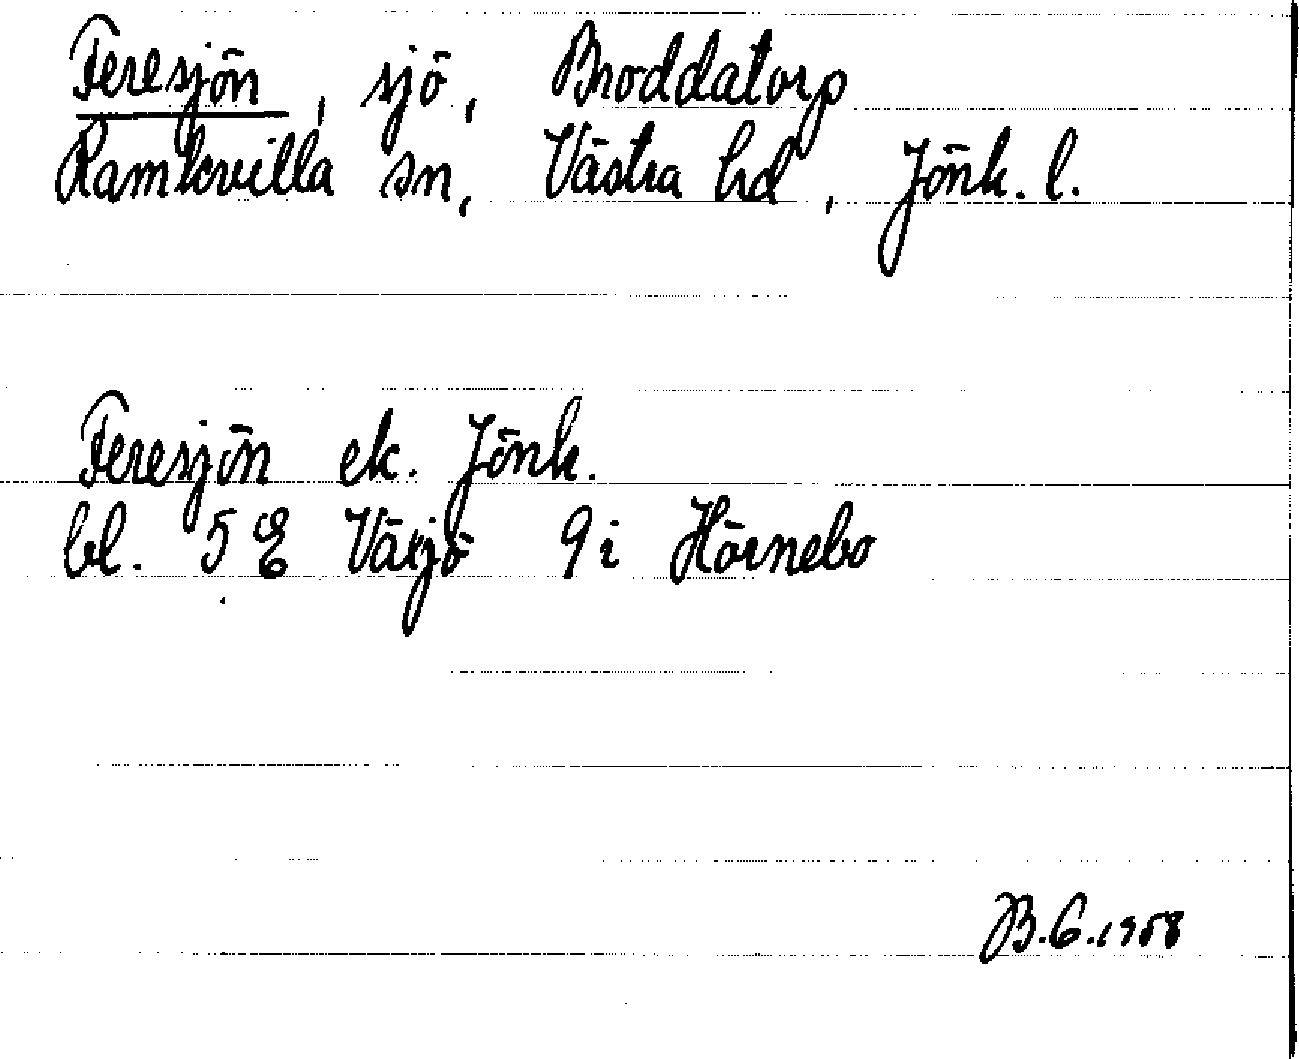 Feresjön, sjö, Broddatorp
Ramkvilla sn, Västra hd, Jönk. l.
Feresjön ek. Jönk.
bl. 5 E Växjö 9 i Hörnebo
B.G.1958